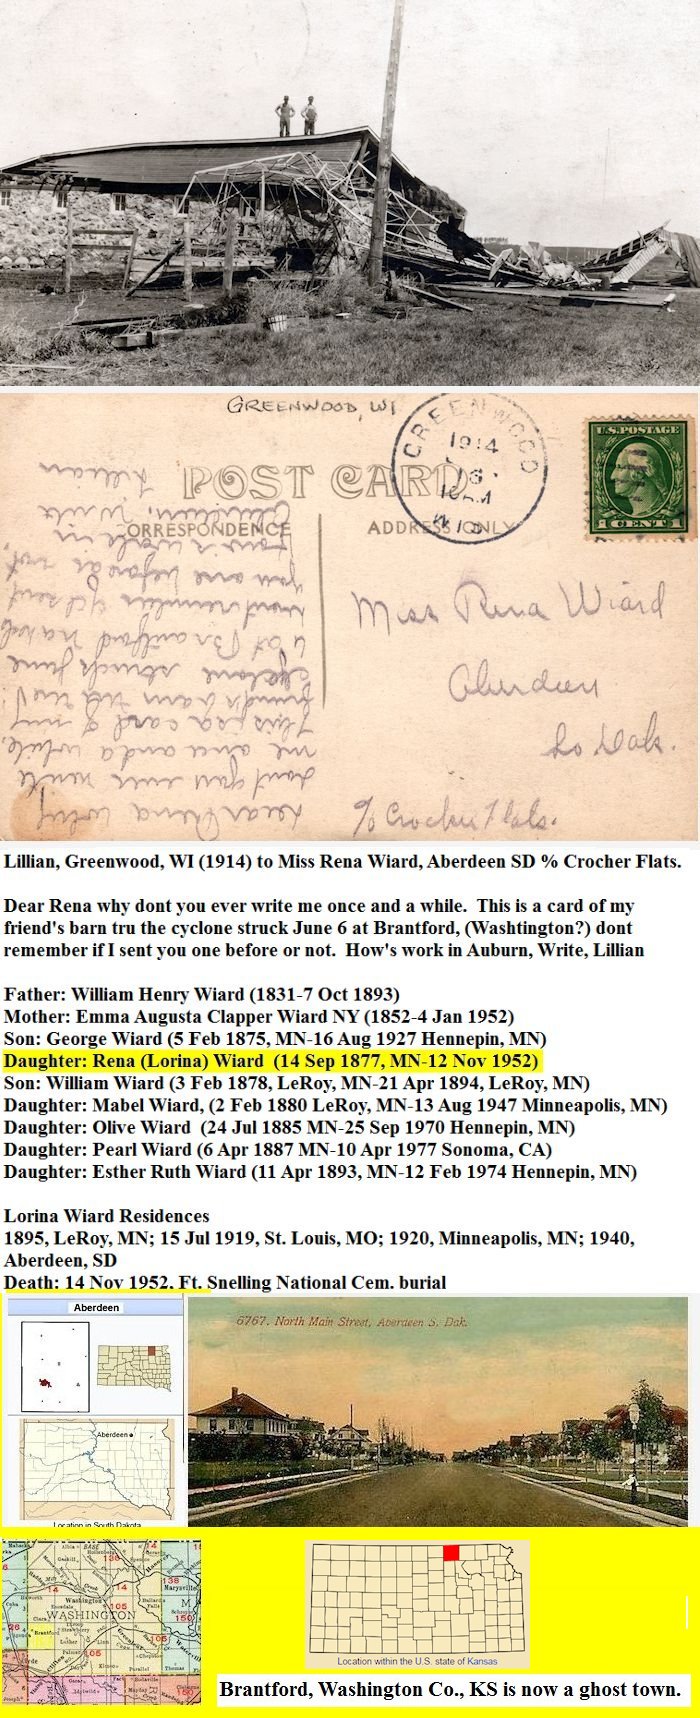 GREENWOOD, WI
GREENWOOD
1914
16
10 AM
WIS
U.S. POSTAGE
1 CENT 1
POST CARD
CORRESPONDENCE
ADDRESS ONLY
Miss Rena Wiard
Aberdeen
So Dak.
c/o Crocher Flats.
Dear Rena why
dont you ever write
me once and a while.
This is a card of my
friend's barn tru the
cyclone struck June
6 at Brantford
dont remember if I sent
you one before or not.
How's work in
Write
Lillian
Lillian, Greenwood, WI (1914) to Miss Rena Wiard, Aberdeen SD % Crocher Flats.
Dear Rena why dont you ever write me once and a while.  This is a card of my
friend's barn tru the cyclone struck June 6 at Brantford, (Washtington?) dont
remember if I sent you one before or not.  How's work in Auburn, Write, Lillian
Father: William Henry Wiard (1831-7 Oct 1893)
Mother: Emma Augusta Clapper Wiard NY (1852-4 Jan 1952)
Son: George Wiard (5 Feb 1875, MN-16 Aug 1927 Hennepin, MN)
Daughter: Rena (Lorina) Wiard  (14 Sep 1877, MN-12 Nov 1952)
Son: William Wiard (3 Feb 1878, LeRoy, MN-21 Apr 1894, LeRoy, MN)
Daughter: Mabel Wiard, (2 Feb 1880 LeRoy, MN-13 Aug 1947 Minneapolis, MN)
Daughter: Olive Wiard  (24 Jul 1885 MN-25 Sep 1970 Hennepin, MN)
Daughter: Pearl Wiard (6 Apr 1887 MN-10 Apr 1977 Sonoma, CA)
Daughter: Esther Ruth Wiard (11 Apr 1893, MN-12 Feb 1974 Hennepin, MN)
Lorina Wiard Residences
1895, LeRoy, MN; 15 Jul 1919, St. Louis, MO; 1920, Minneapolis, MN; 1940,
Aberdeen, SD
Death: 14 Nov 1952, Ft. Snelling National Cem. burial
Aberdeen
Aberdeen
Location in South Dakota
6767. North Main Street, Aberdeen S. Dak.
WASHINGTON
Washington
Brantford
Marysville
Clifton
Linn
Parallel
Thomas
Location within the U.S. state of Kansas
Brantford, Washington Co., KS is now a ghost town.